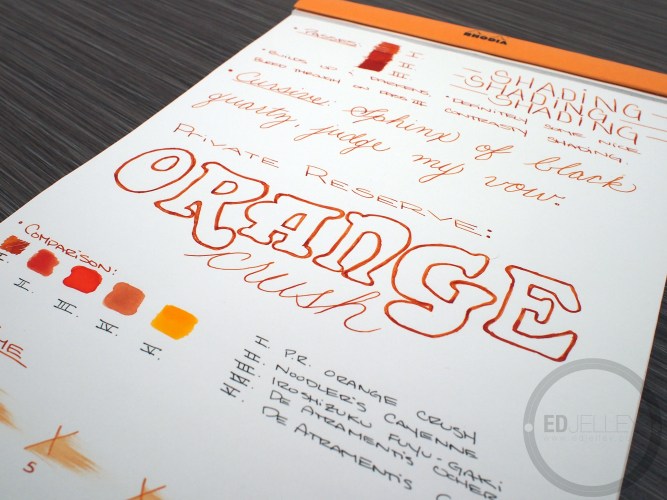 RHODIA
• PASSES:
I.
II.
III.
SHADING
SHADING
SHADING
• BUILDS UP & DARKENS.
BLEED THROUGH ON PASS III
• DEFINITELY SOME NICE
CONTRASTY SHADING.
• Cursive: Sphinx of black
quartz, judge my vow.
PRIVATE RESERVE:
ORANGE
crush
• COMPARISON:
I. II. III. IV. V.
I. P.R. ORANGE CRUSH
II. NOODLER'S CAYENNE
III. IROSHIZUKU FUYU-GAKI
DE ATRAMENTIS OCHER
DE ATRAMENTIS
5
EDJELLEY